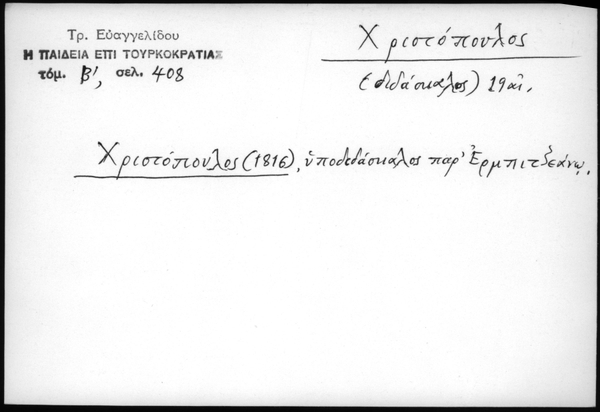 Τρ. Εὐαγγελίδου
Η ΠΑΙΔΕΙΑ ΕΠΙ ΤΟΥΡΚΟΚΡΑΤΙΑΣ
τόμ. Β', σελ. 408
Χριστόπουλος
(διδάσκαλος) 19 αἰ.
Χριστόπουλος (1816), ὑποδιδάσκαλος παρ' Ἐρμπιτζεάνῳ.